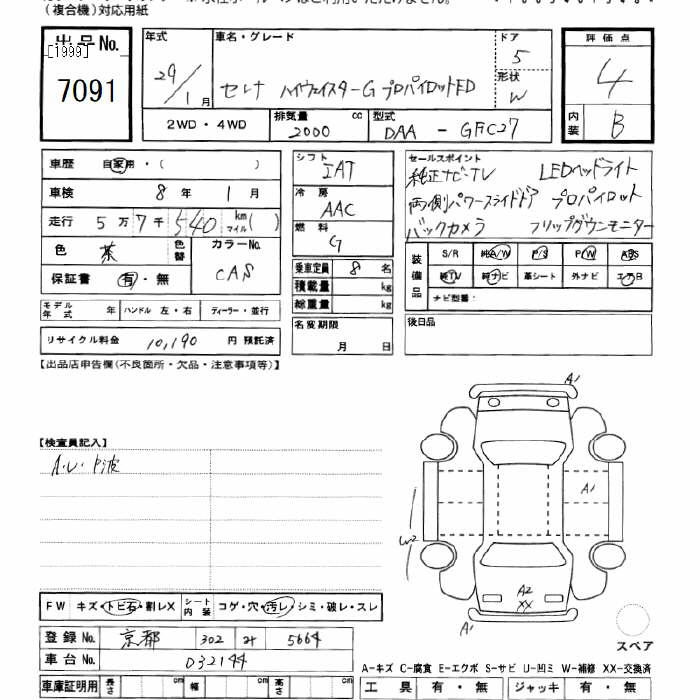 (複合機)対応用紙
出品No.
[1999]
7091
年式
29/1月
車名・グレード
セレナ ハイウェイスターG プロパイロットED
ドア
5
形状
W
評価点
4
内装
B
2WD・4WD
排気量 cc
2000
型式
DAA - GFC27
車歴 自家用・( )
車検 8年 1月
走行 5万7千540 km マイル( )
色 茶 色替
カラーNo.
CAS
保証書 有・無
シフト
IAT
冷房
AAC
燃料
G
乗車定員 8名
積載量 kg
総重量 kg
セールスポイント
純正ナビ・TV LEDヘッドライト
両側パワースライドドア プロパイロット
バックカメラ フリップダウンモニター
装備品
S/R 純A/W P/S P/W ABS
純TV 純ナビ 革シート 外ナビ エアB
ナビ型番:
モデル年式 年 ハンドル 左・右 ディーラー・並行
リサイクル料金 10,190 円 預託済
名変期限
月 日
後日品
【出品店申告欄(不良箇所・欠品・注意事項等)】
【検査員記入】
A・U・P波
A1
A1
W2
A2
XX
A1
FW キズ・トビ石・割レX シート内装 コゲ・穴・汚レ・シミ・破レ・スレ
登録No. 京都 302 5664
車台No. 032144
車庫証明用 長さ cm 幅 cm 高さ cm
スペア
A-キズ C-腐食 E-エクボ S-サビ U-凹ミ W-補修 XX-交換済
工具 有・無 ジャッキ 有・無